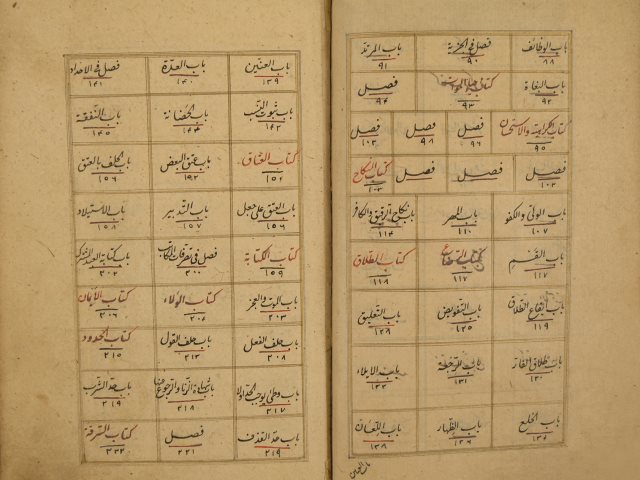 باب الوظائف ٨٨ فصل فى الجزية ٩٠ باب المرتد ٩١
باب البغاة ٩٢ كتاب ٩٣ فصل ٩٤
كتاب الكراهية والاستحسان ٩٥ فصل ٩٦ فصل ٩٨ فصل ١٠٢
فصل ١٠٣ فصل فصل كتاب النكاح ١٠٣
باب الولى والكفو ١٠٧ باب المهر ١١٠ باب نكاح الرقيق والكافر ١١٤
باب القسم ١١٧ كتاب الرضاع ١١٧ كتاب الطلاق ١١٨
باب ايقاع الطلاق ١١٩ باب التفويض ١٢٥ باب التعليق ١٢٩
باب طلاق الفار ١٣٠ باب الرجعة ١٣١ باب الايلاء ١٣٢
باب الخلع ١٣٤ باب الظهار ١٣٦ باب اللعان ١٣٨
باب العنين
باب العنين ١٣٩ باب العدّة ١٤٠ فصل فى الاحداد ١٤١
باب ثبوت النسب ١٤٢ باب الحضانة ١٤٤ باب النفقة ١٤٥
كتاب العتاق ١٥٢ باب عتق البعض ١٥٣ باب الحلف بالعتق ١٥٦
باب العتق على جعل ١٥٦ باب التدبير ١٥٧ باب الاستيلاد ١٥٨
كتاب الكتابة ١٥٩ فصل فى تصرفات المكاتب ٢٠٠ باب كتابة العبد المشترك ٢٠٢
باب الموت والعجز ٢٠٣ كتاب الولاء ٢٠٤ كتاب الأيمان ٢٠٦
باب حلف الفعل ٢٠٨ باب حلف القول ٢١٣ كتاب الحدود ٢١٥
باب وطئ يوجب الحد اولا ٢١٧ باب شهادة الزنا والرجوع عنها ٢١٨ باب حدّ الشرب ٢١٩
باب حد القذف ٢١٩ فصل ٢٢١ كتاب السرقة ٢٢٢